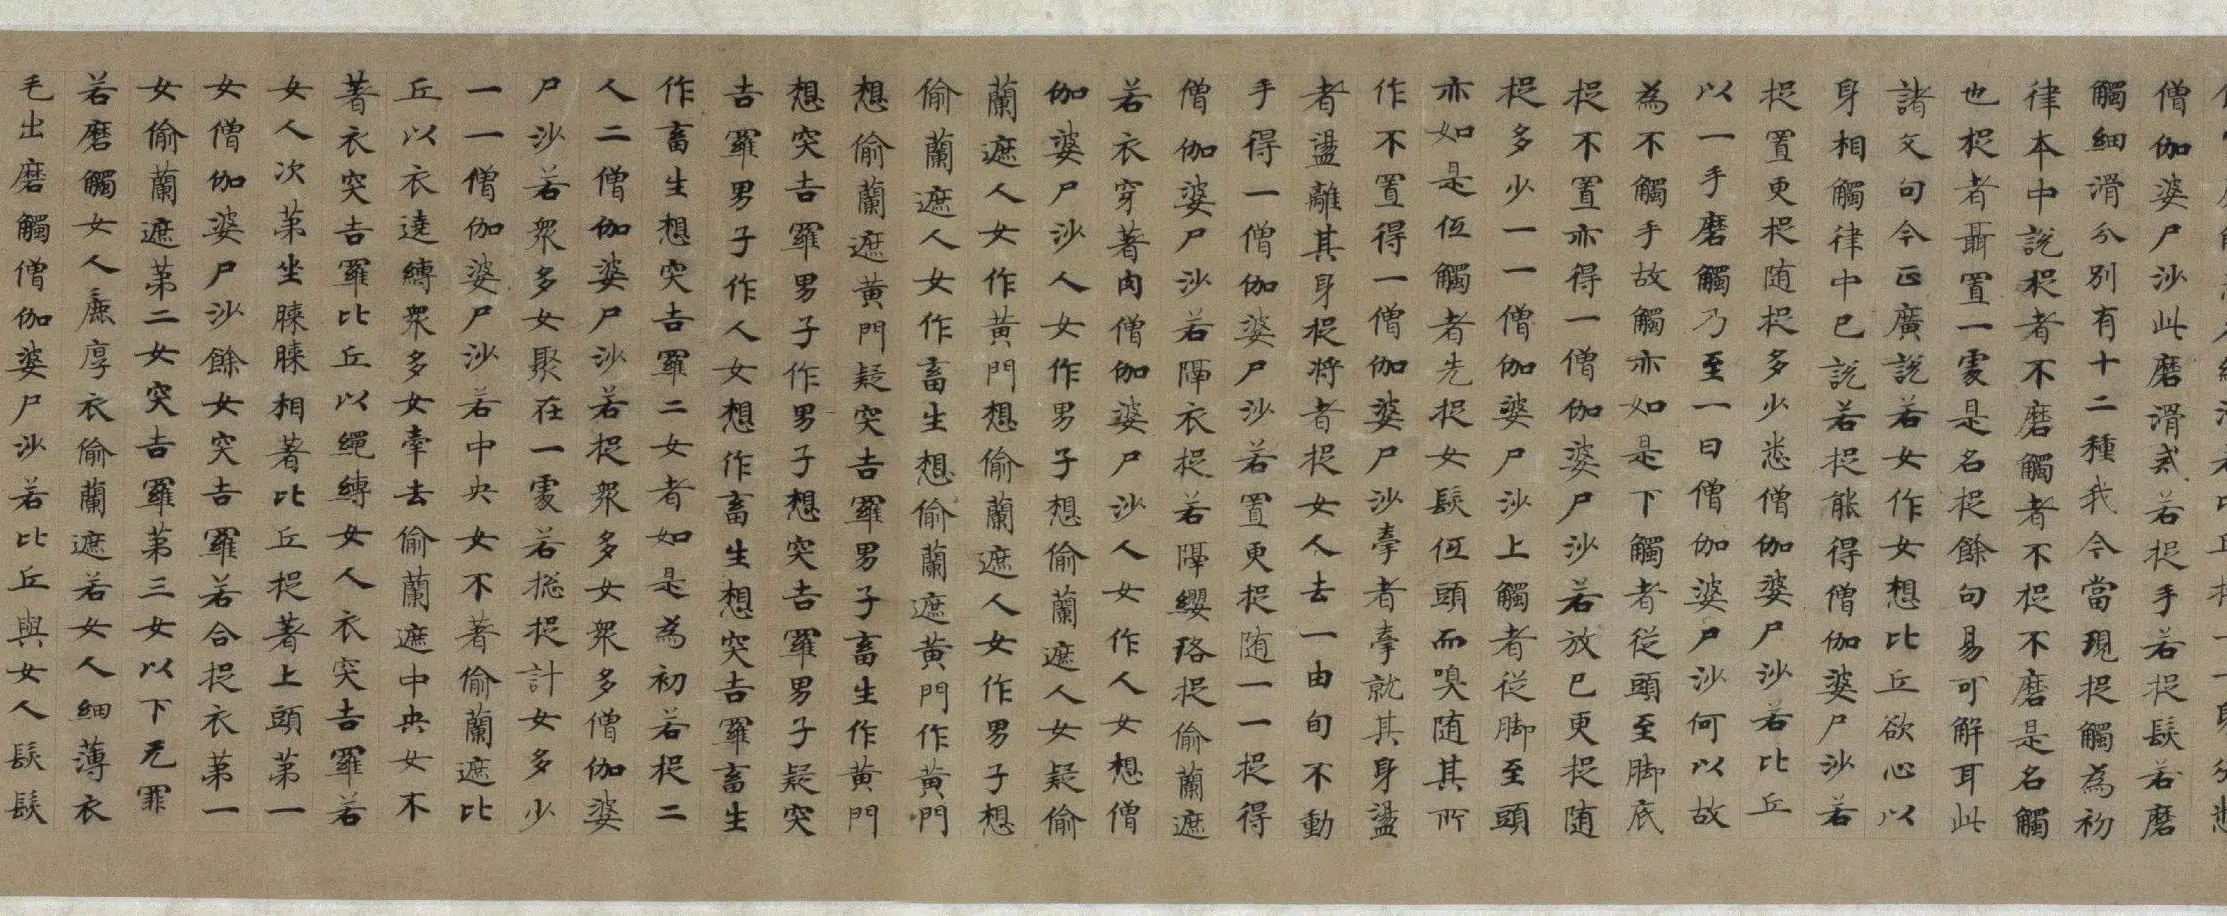 僧伽婆尸沙此磨滑戒若捉手若捉髮若磨
觸細滑分別有十二種我今當現捉觸為初
律本中說捉者不磨觸者不捉不磨是名觸
也捉者聶置一處是名捉餘句易可解耳此
諸文句今正廣說若女作女想比丘欲心以
身相觸律中已說若捉能得僧伽婆尸沙若
捉置更捉随捉多少悉僧伽婆尸沙若比丘
以一手磨觸乃至一日僧伽婆尸沙何以故
為不觸手故觸亦如是下觸者從頭至脚底
捉不置亦得一僧伽婆尸沙若放已更捉随
捉多少一一僧伽婆尸沙上觸者從脚至頭
亦如是伍觸者先捉女髮伍頭而嗅随其所
作不置得一僧伽婆尸沙牽者牽就其身盪
者盪離其身捉將者捉女人去一由旬不動
手得一僧伽婆尸沙若置更捉随一一捉得
僧伽婆尸沙若隔衣捉若隔纓珞捉偷蘭遮
若衣穿著肉僧伽婆尸沙人女作人女想僧
伽婆尸沙人女作男子想偷蘭遮人女疑偷
蘭遮人女作黃門想偷蘭遮人女作男子想
偷蘭遮人女作畜生想偷蘭遮黃門作黃門
想偷蘭遮黃門疑突吉羅男子畜生作黃門
想突吉羅男子作男子想突吉羅男子疑突
吉羅男子作人女想作畜生想突吉羅畜生
作畜生想突吉羅二女者如是為初若捉二
人二僧伽婆尸沙若捉眾多女眾多僧伽婆
尸沙若眾多女聚在一處若捴捉計女多少
一一僧伽婆尸沙若中央女不著偷蘭遮比
丘以衣遶縛眾多女牽去偷蘭遮中央女不
著衣突吉羅比丘以繩縛女人衣突吉羅若
女人次第坐膝膝相著比丘捉著上頭第一
女僧伽婆尸沙餘女突吉羅若合捉衣第一
女偷蘭遮第二女突吉羅第三女以下无罪
若磨觸女人麁厚衣偷蘭遮若女人細薄衣
毛出磨觸僧伽婆尸沙若比丘與女人髮髮